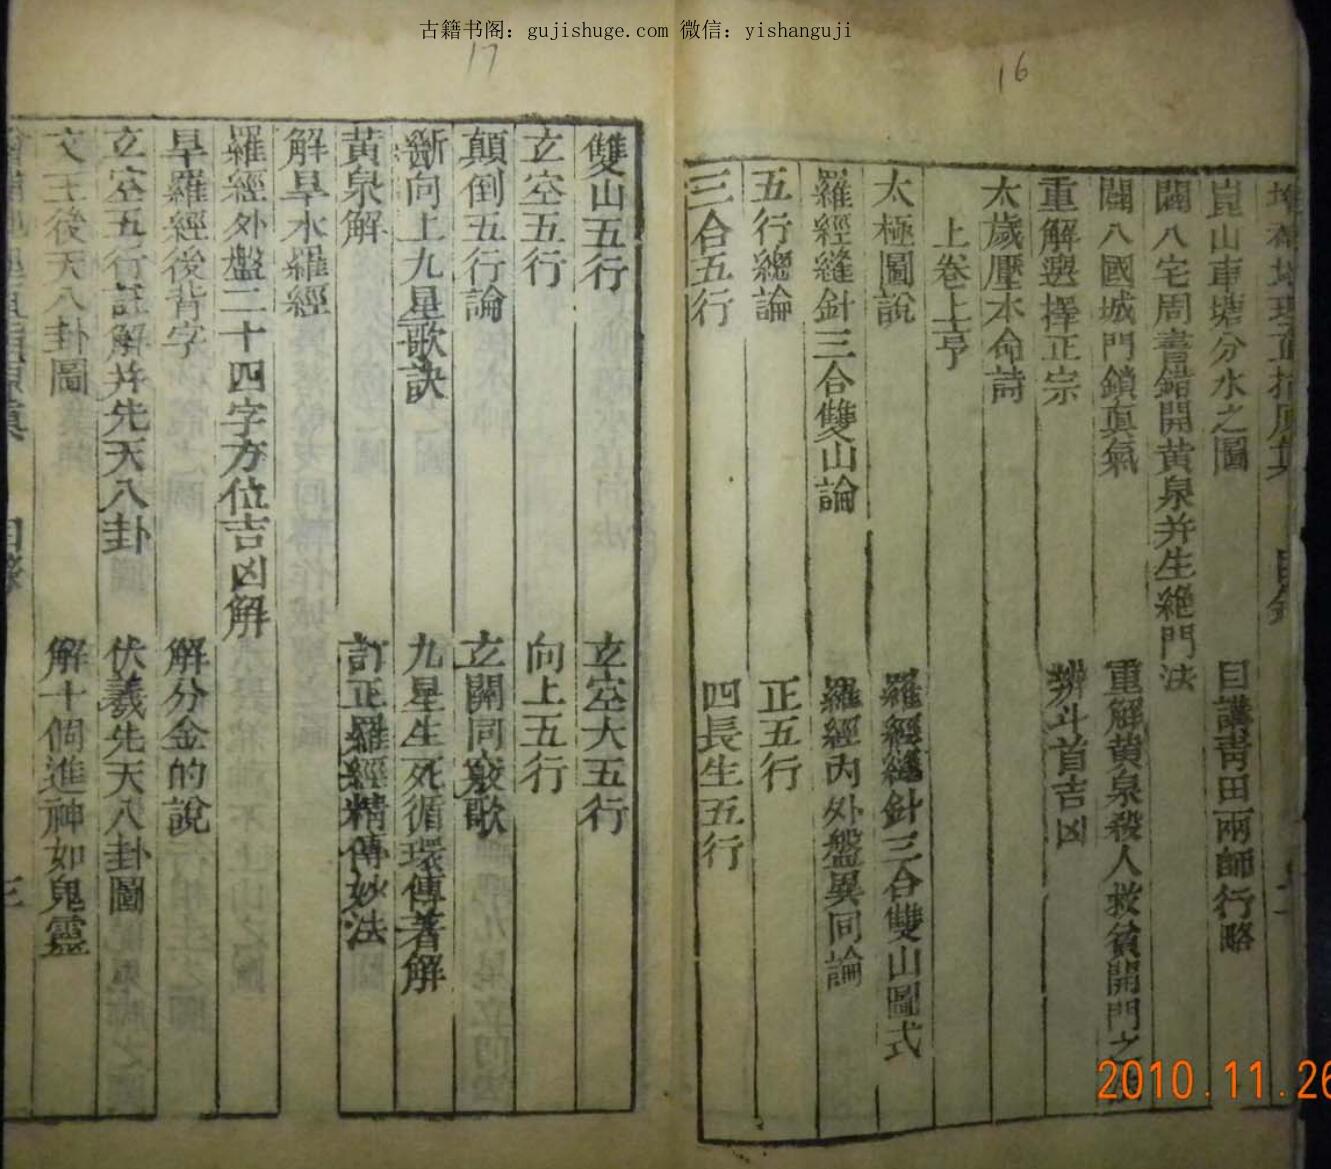 古籍书阁：gujishuge.com 微信：yishanguji
16
17
崑山車塘分水之圖 目講青田兩師行略
闢八宅周書錯開黃泉并生絕門法
闢八國城門鎖眞氣 重解黃泉殺人救貧開門之
重解選擇正宗 辨斗首吉凶
太歲壓本命詩
上卷上亨
太極圖說 羅經縫針三合雙山圖式
羅經縫針三合雙山論 羅經內外盤異同論
五行總論 正五行
三合五行 四長生五行
雙山五行 玄空大五行
玄空五行 向上五行
顛倒五行論 玄關同竅歌
斷向上九星歌訣 九星生死循環傳著解
黃泉解 訂正羅經精傳妙法
解旱水羅經
羅經外盤二十四字方位吉凶解
旱羅經後背字 解分金的說
玄空五行註解并先天八卦 伏羲先天八卦圖
文王後天八卦圖 解十個進神如鬼靈
目錄 三
2010.11.26